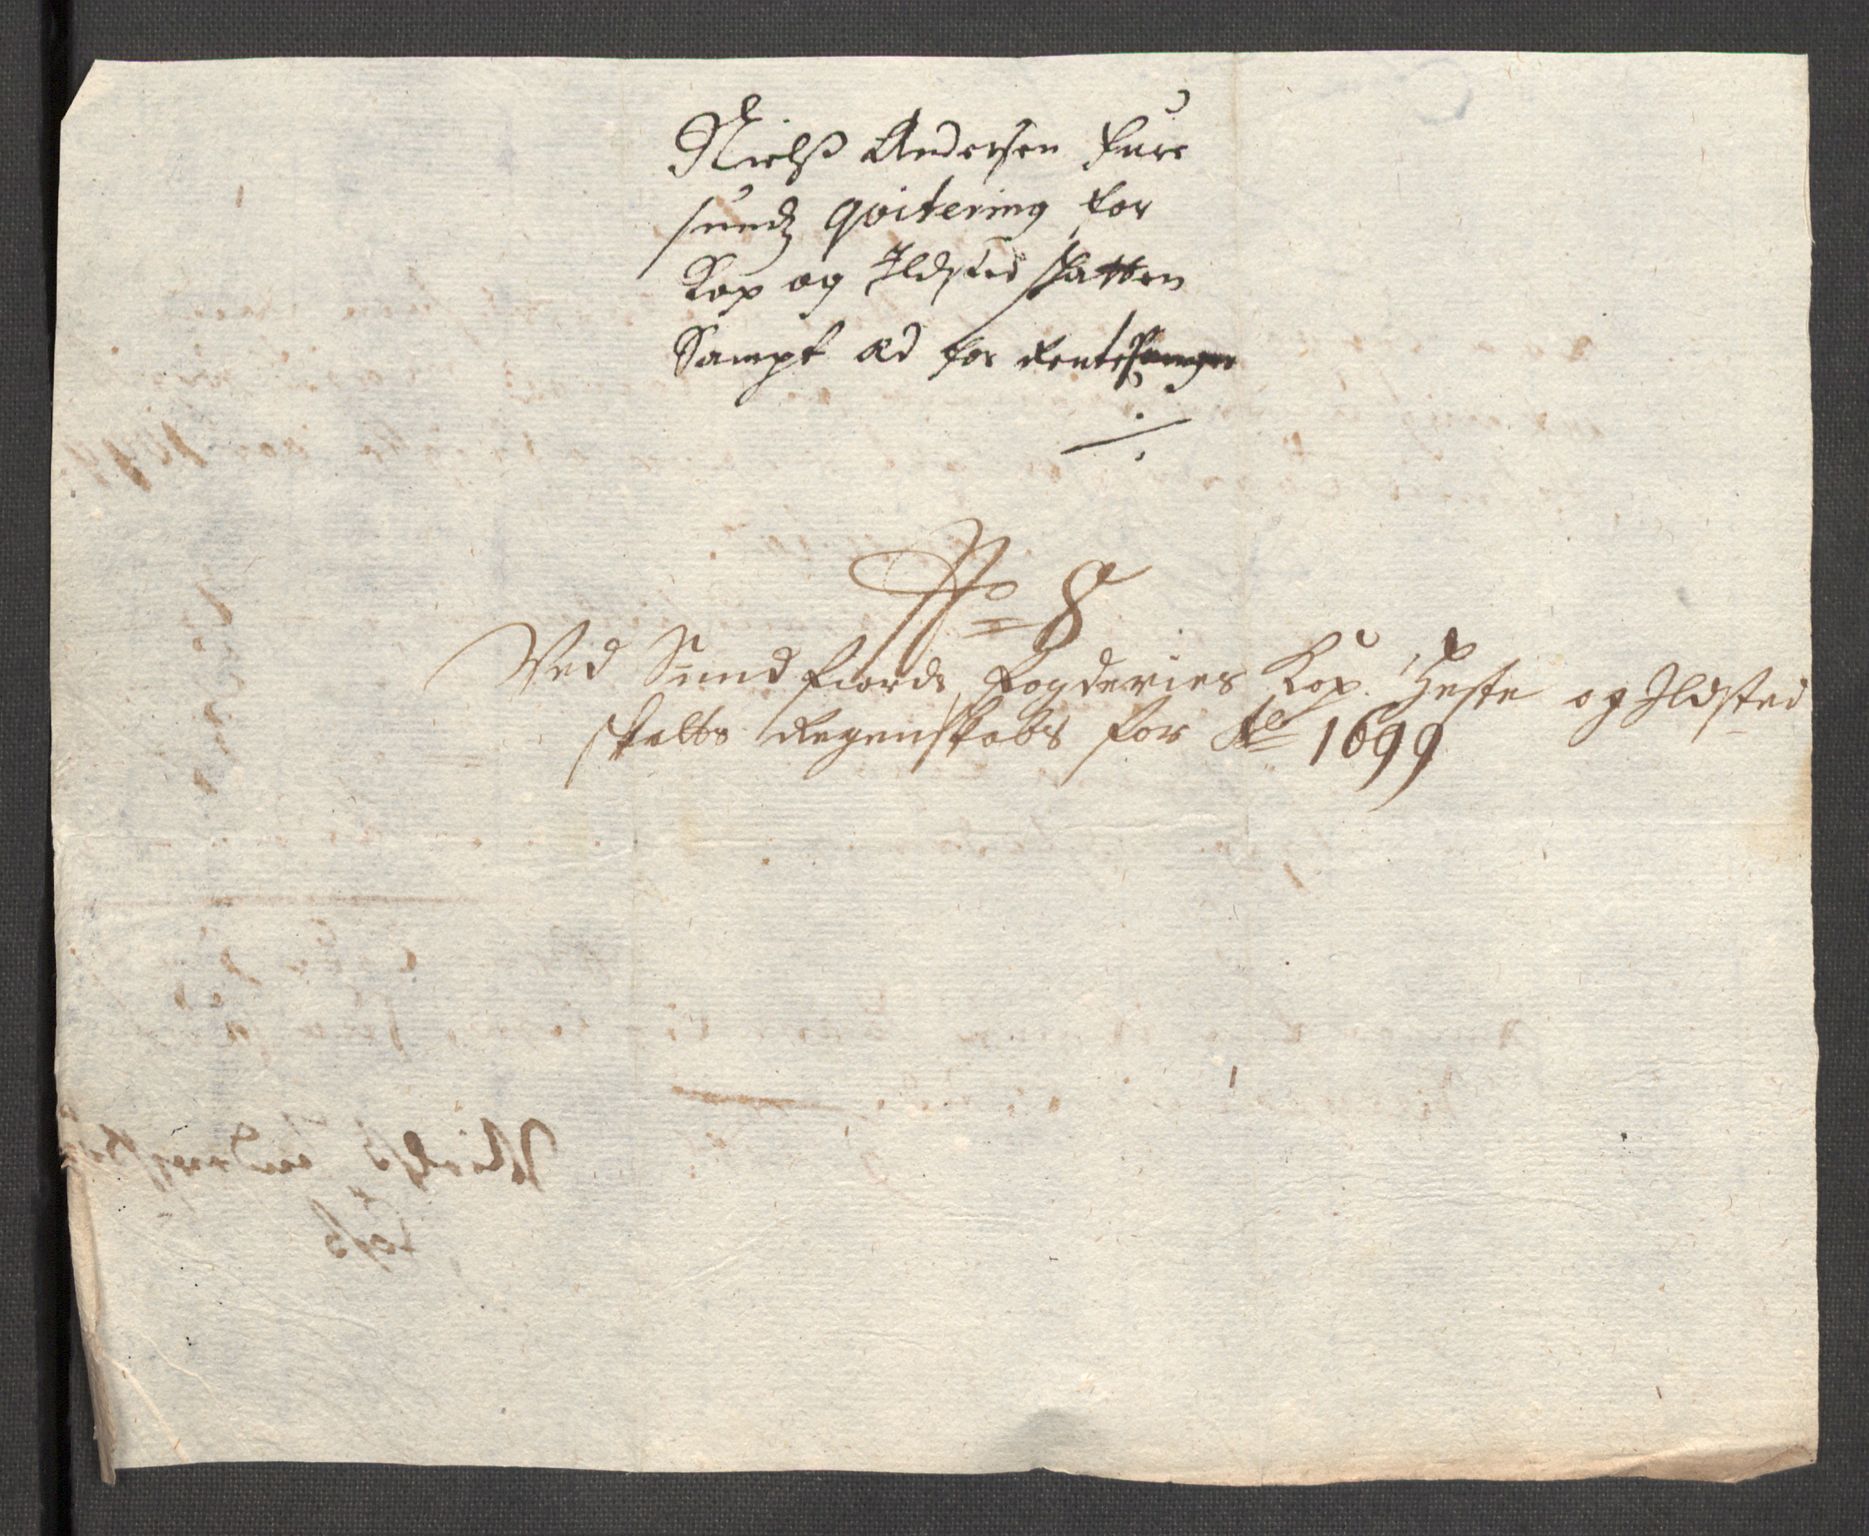 Nielß Andersen Fure
sundz qvitering for
Kop og Ildsted skatten
Sampt ad for Rentepenger
No 8
Ved Sundfiords Fogderies Kop. Heste og Ildsted
skatts Regenskabs for Ao 1699